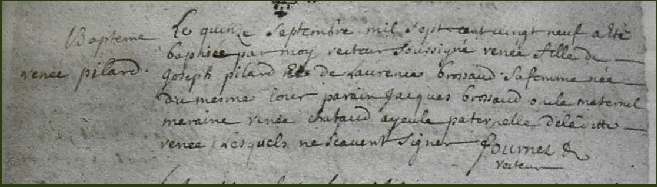 Bapteme
renée pilard.
Le quinze Septembre mil Sept cent vingt neuf a Eté
baptisée par moy recteur Soussigné renée fille de
Joseph pilard Et de Laurence brossaud Sa femme née
du mesme jour parain Jacques brossaud oncle maternel
maraine renée chataud ayeule paternelle de la ditte
renée, Lesquels ne Scavent Signer
recteur